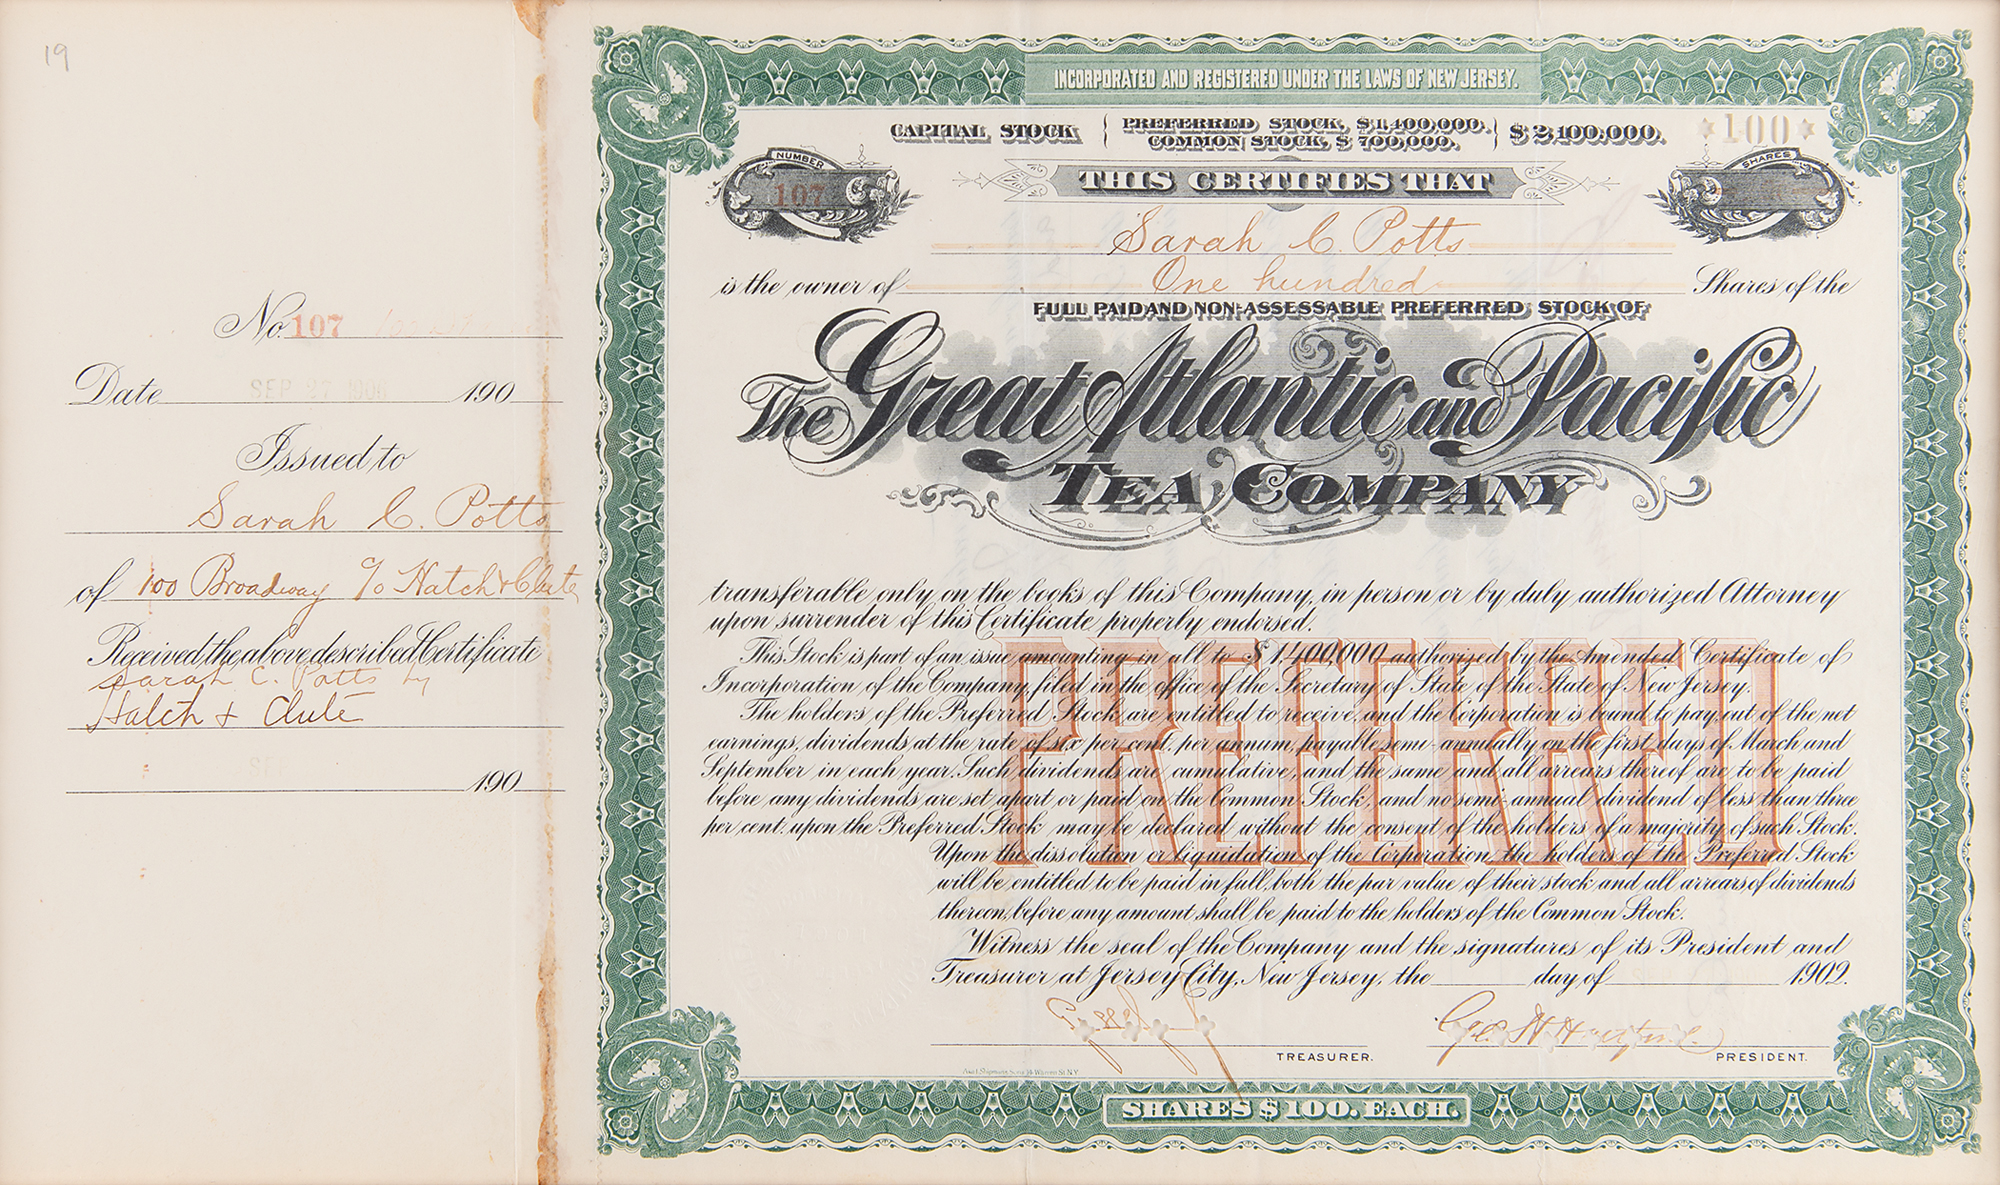 19
No. 107
Date SEP 27 1906 190
Issued to
Sarah C. Potts
of 100 Broadway c/o Hatch & Clute
Received the above described Certificate
Sarah C. Potts by
Hatch & Clute
SEP 190
INCORPORATED AND REGISTERED UNDER THE LAWS OF NEW JERSEY.
CAPITAL STOCK { PREFERRED STOCK, $1,400,000. } $2,100,000.
COMMON STOCK, $700,000.
100
NUMBER
107
SHARES
THIS CERTIFIES THAT
Sarah C. Potts
is the owner of One hundred Shares of the
FULL PAID AND NON-ASSESSABLE PREFERRED STOCK OF
The Great Atlantic and Pacific
TEA COMPANY
transferable only on the books of this Company, in person or by duly authorized Attorney
upon surrender of this Certificate properly endorsed.
This Stock is part of an issue amounting in all to $1,400,000 authorized by the Amended Certificate of
Incorporation of the Company, filed in the office of the Secretary of State of the State of New Jersey.
The holders of the Preferred Stock are entitled to receive, and the Corporation is bound to pay, out of the net
earnings, dividends at the rate of six per cent. per annum, payable semi-annually on the first days of March and
September in each year. Such dividends are cumulative, and the same and all arrears thereof are to be paid
before any dividends are set apart or paid on the Common Stock, and no semi-annual dividend of less than three
per cent. upon the Preferred Stock may be declared without the consent of the holders of a majority of such Stock.
Upon the dissolution or liquidation of the Corporation, the holders of the Preferred Stock
will be entitled to be paid in full, both the par value of their stock and all arrears of dividends
thereon, before any amount shall be paid to the holders of the Common Stock.
PREFERRED
Witness the seal of the Company and the signatures of its President and
Treasurer at Jersey City, New Jersey, the day of 1902.
Geo. H. Hartford
TREASURER.
PRESIDENT.
SHARES $100. EACH.